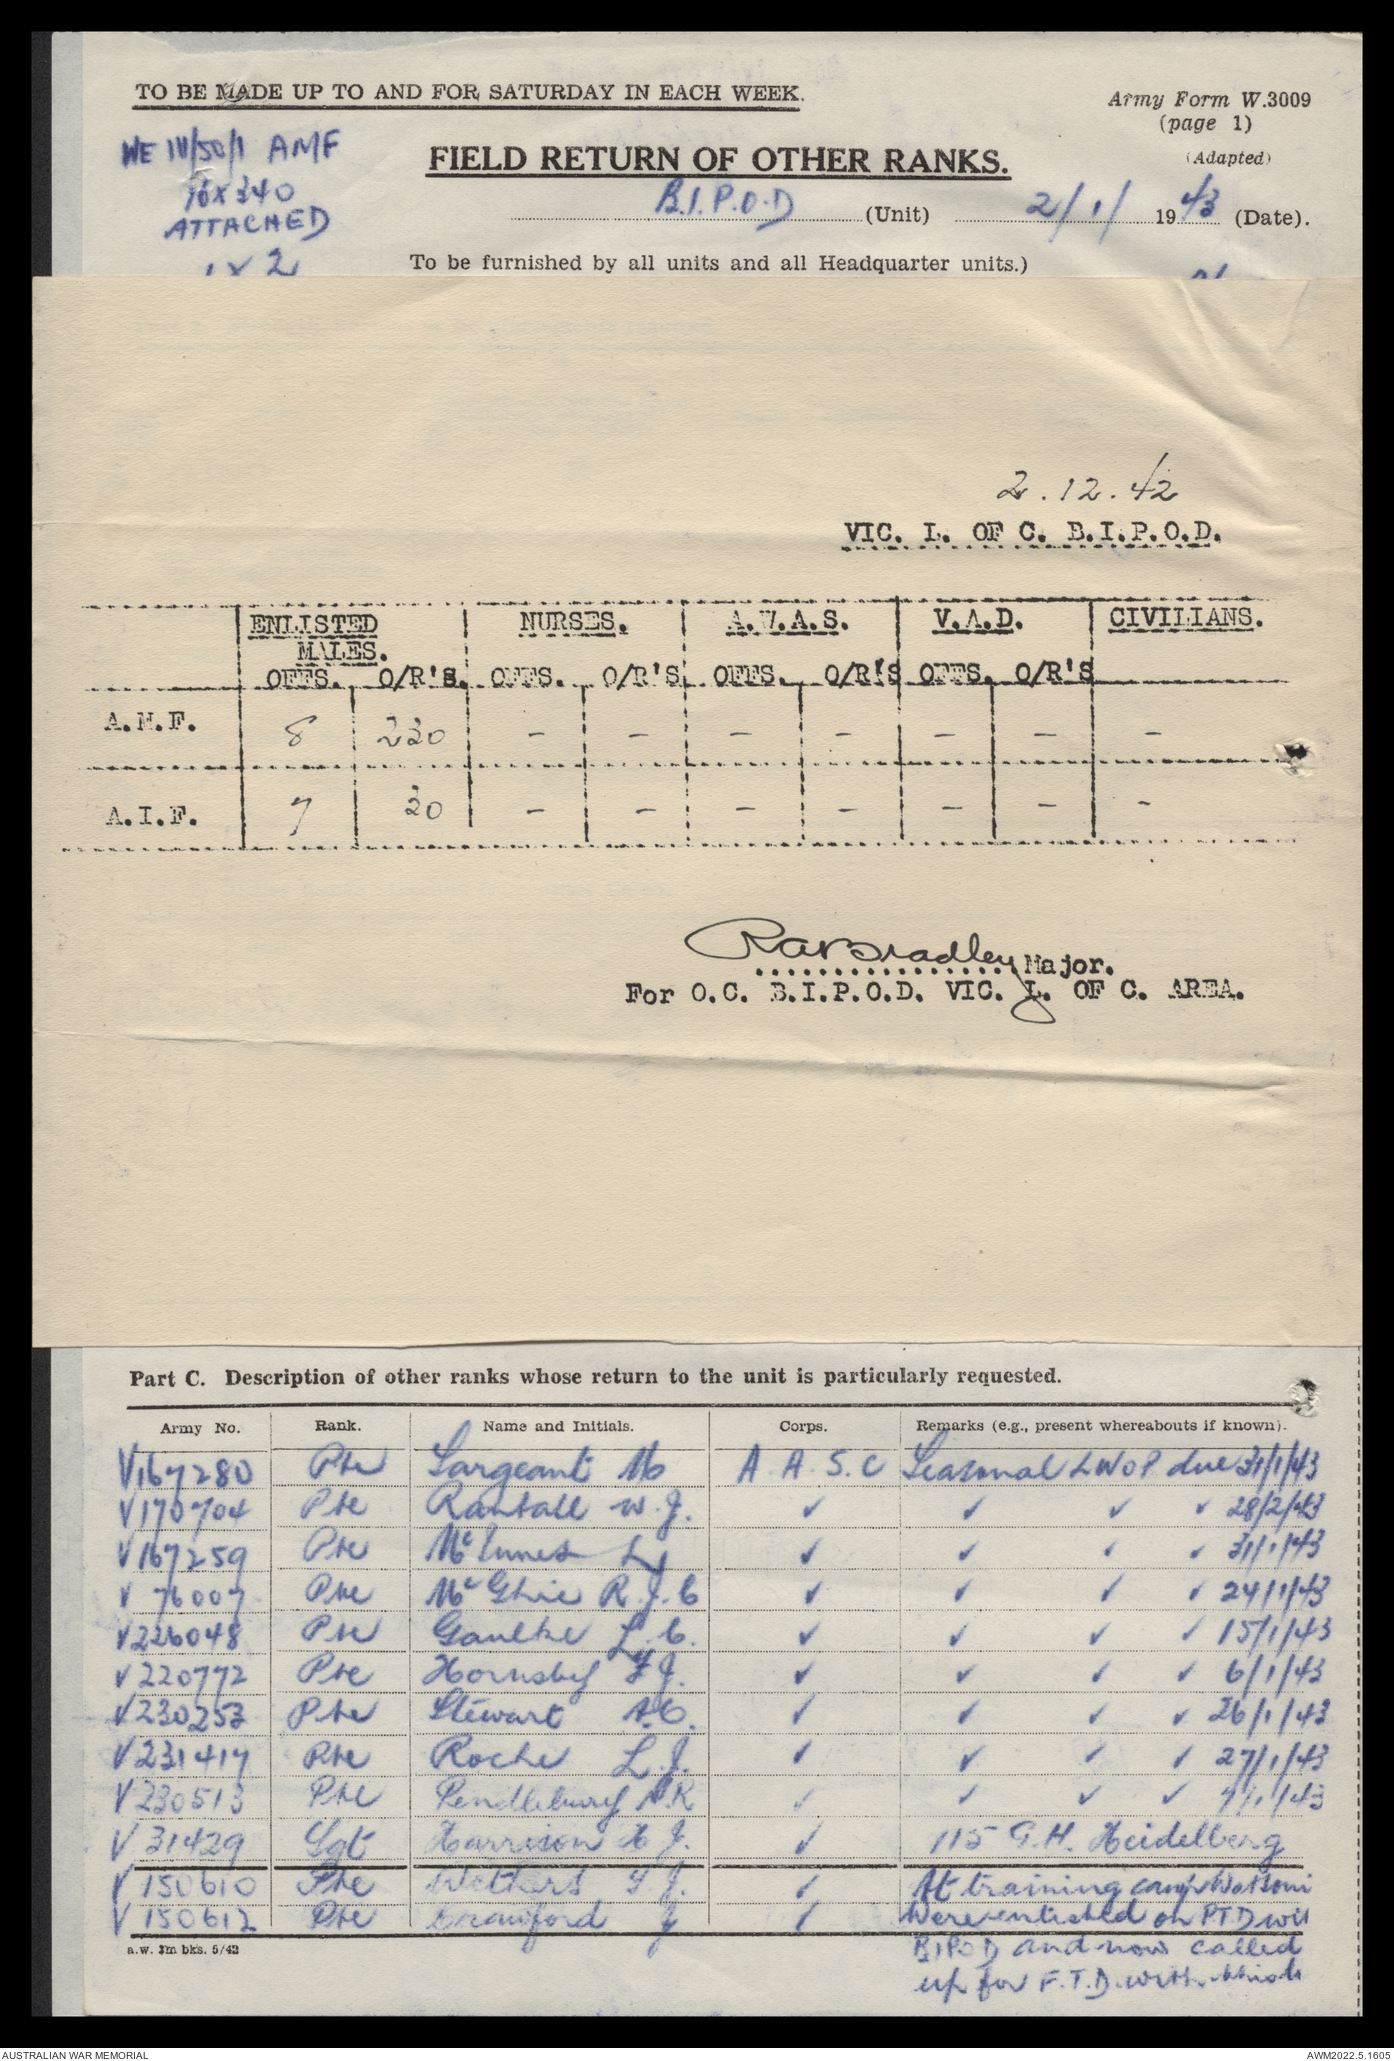 TO BE MADE UP TO AND FOR SATURDAY IN EACH WEEK.
Army Form W.3009
(page 1)
(Adapted)
WE IV/50/1 AMF
16 x 340
ATTACHED
1 x 2
FIELD RETURN OF OTHER RANKS.
B.I.P.O.D (Unit) 2/1/ 1943 (Date).
To be furnished by all units and all Headquarter units.)
2.12.42
VIC. L. OF C. B.I.P.O.D.
ENLISTED MALES. NURSES. A.W.A.S. V.A.D. CIVILIANS.
OFFS. O/R'S. OFFS. O/R'S. OFFS. O/R'S OFFS. O/R'S
A.M.F. 8 230 - - - - - - -
A.I.F. 7 30 - - - - - - -
RABradley Major.
For O.C. B.I.P.O.D. VIC. L. OF C. AREA.
Part C. Description of other ranks whose return to the unit is particularly requested.
Army No. Rank. Name and Initials. Corps. Remarks (e.g., present whereabouts if known).
V167280 Pte Sargeant M A.A.S.C Seasonal LWOP due 31/1/43
V170704 Pte Randall W.J. ✓ ✓ ✓ ✓ 28/2/43
V167259 Pte McInnes L ✓ ✓ ✓ ✓ 31/1/43
V 76007 Pte McGhie R.J.C ✓ ✓ ✓ ✓ 24/1/43
V226048 Pte Gaulke L.C. ✓ ✓ ✓ ✓ 15/1/43
V220772 Pte Hornsby F.J. ✓ ✓ ✓ ✓ 6/1/43
V230253 Pte Stewart A.C. ✓ ✓ ✓ ✓ 26/1/43
V231417 Pte Roche L.J. ✓ ✓ ✓ ✓ 27/1/43
V230513 Pte Pendlebury A.R ✓ ✓ ✓ ✓ 7/1/43
V31429 Sgt Harrison H J. ✓ 115 G.H. Heidelberg
V150610 Pte J. ✓ At training camp
V150612 Pte Crawford J ✓ Were enlisted on PTD
BIPOD and now called
up for F.T.D. with
a.w. 3m bks. 5/42
AUSTRALIAN WAR MEMORIAL
AWM2022.5.1605